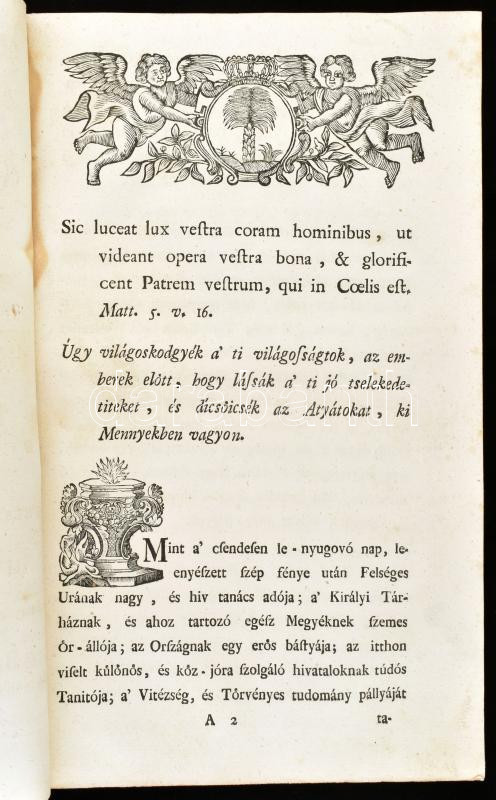 Sic luceat lux veſtra coram hominibus, ut
videant opera veſtra bona, & glorifi-
cent Patrem veſtrum, qui in Cœlis eſt.
Matt. 5. v. 16.
Úgy világoskodgyék a' ti világoſságtok, az em-
berek elôtt, hogy láſsák a' ti jó tselekede-
titeket, és dicsôicsék az Atyátokat, ki
Mennyekben vagyon.
Mint a' cſendeſen le-nyugovó nap, le-
enyéſzett ſzép fénye után Felséges
Urának nagy, és hiv tanács adója; a' Királyi Tár-
háznak, és ahoz tartozó egéſz Megyéknek ſzemes
ôr-állója; az Orſzágnak egy erôs báſtyája; az itthon
viſelt kúlônôs, és kôz-jóra ſzolgáló hivataloknak túdós
Tanitója; a' Vitézség, és Tôrvényes tudomány pállyáját
A 2 ta-